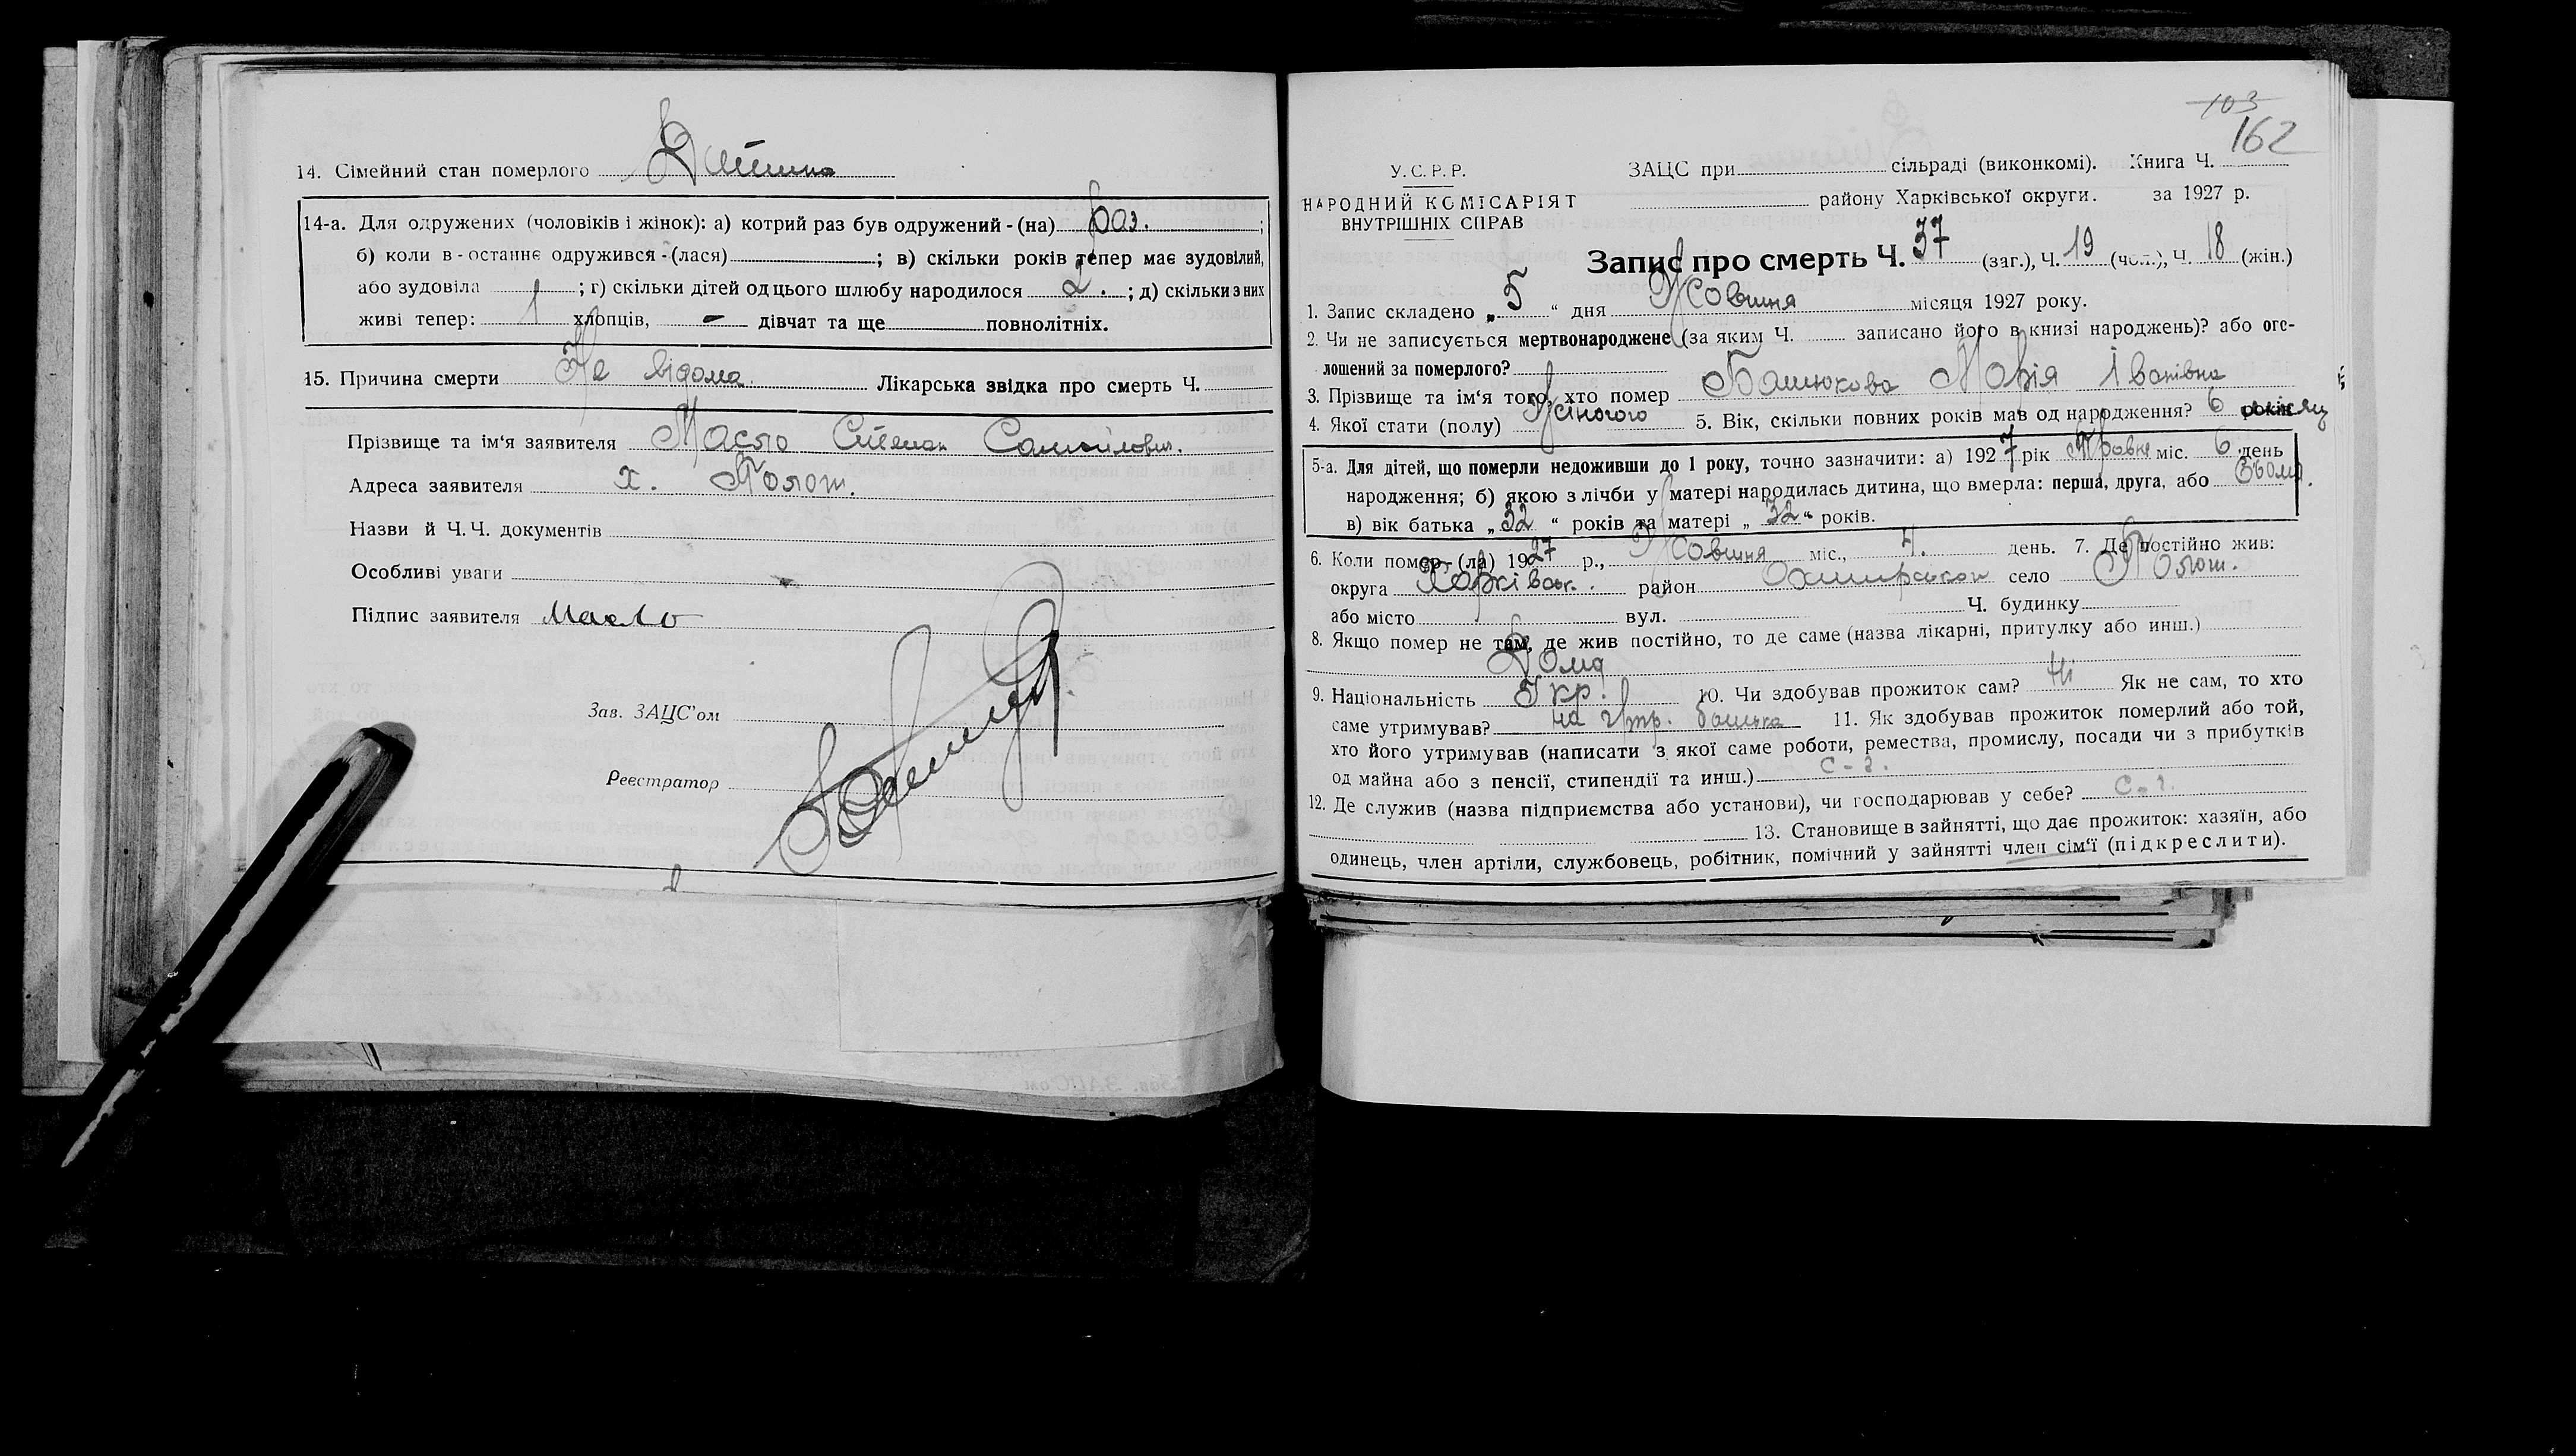 14. Сімейний стан померлого Дитина
14-а. Для одружених (чоловіків і жінок): а) котрий раз був одружений-(на) раз. ;
б) коли в-останнє одружився-(лася) ; в) скільки років тепер має зудовілий,
або зудовіла ; г) скільки дітей од цього шлюбу народилося 2. ; д) скільки з них
живі тепер: 1 хлопців, - дівчат та ще повнолітніх.
15. Причина смерти Не відома. Лікарська звідка про смерть Ч.
Прізвище та ім'я заявителя Масло Степан Самойлович.
Адреса заявителя х.
Назви й Ч.Ч. документів
Особливі уваги
Підпис заявителя Масло
Зав. ЗАЦС'ом
Реєстратор
103
162
У.С.Р.Р.
НАРОДНИЙ КОМІСАРІЯТ
ВНУТРІШНІХ СПРАВ
ЗАЦС при сільраді (виконкомі). Книга Ч.
району Харківської округи. за 1927 р.
Запис про смерть Ч. 37 (заг.), Ч. 19 (чол.), Ч. 18 (жін.)
1. Запис складено „ 5 “ дня Жовтня місяця 1927 року.
2. Чи не записується мертвонароджене (за яким Ч. записано його в книзі народжень)? або ого-
лошений за померлого?
3. Прізвище та ім'я того, хто помер Марія Іванівна
4. Якої стати (полу) Жіночого 5. Вік, скільки повних років мав од народження? 6 років місяц
5-а. Для дітей, що померли недоживши до 1 року, точно зазначити: а) 1927 рік Травня міс. 6 день
народження; б) якою з лічби у матері народилась дитина, що вмерла: перша, друга, або
в) вік батька „ 32 “ років та матері „ 32 “ років.
6. Коли помер-(ла) 1927 р., Жовтня міс., 4. день. 7. Де постійно жив:
округа Харківськ. район село
або місто вул. Ч. будинку
8. Якщо помер не там, де жив постійно, то де саме (назва лікарні, притулку або инш.)
Дома
9. Національність Укр. 10. Чи здобував прожиток сам? Ні Як не сам, то хто
саме утримував? на утр. батька 11. Як здобував прожиток померлий або той,
хто його утримував (написати з якої саме роботи, ремества, промислу, посади чи з прибутків
од майна або з пенсії, стипендії та инш.) с-г.
12. Де служив (назва підприємства або установи), чи господарював у себе? с-г.
13. Становище в зайнятті, що дає прожиток: хазяїн, або
одинець, член артіли, службовець, робітник, помічний у зайнятті член сім'ї (підкреслити).